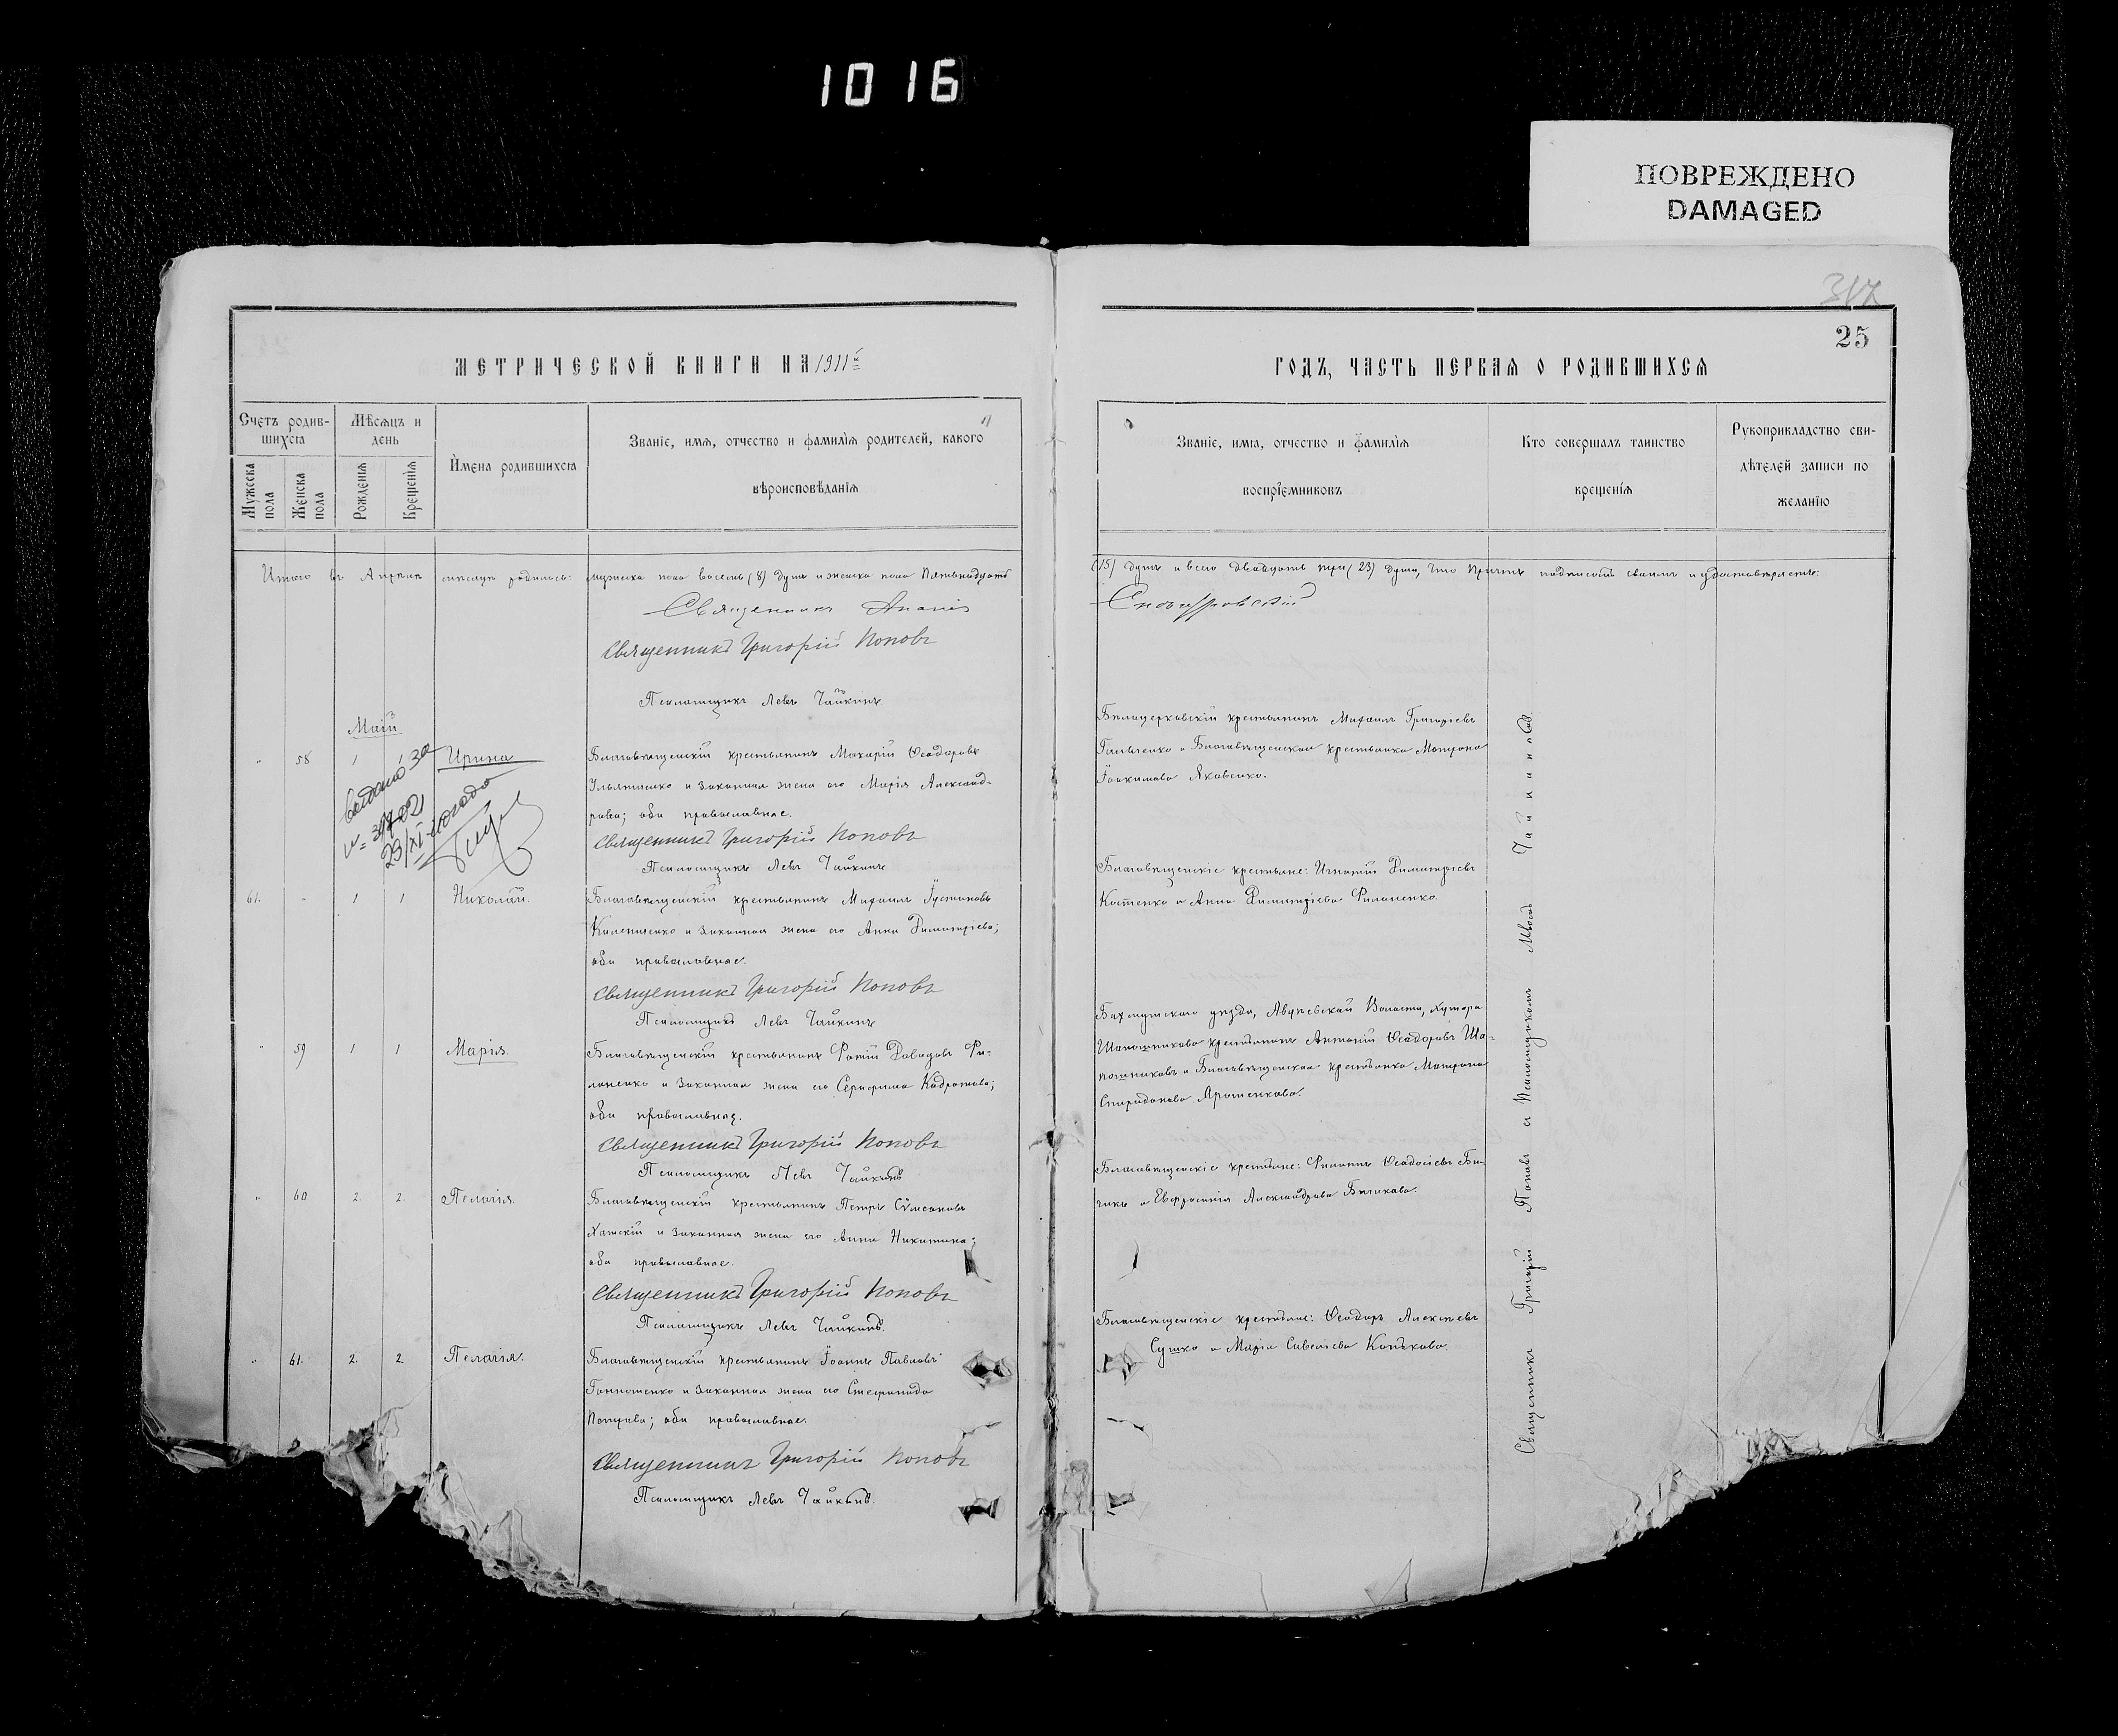 1016
ПОВРЕЖДЕНО
DAMAGED
25
МЕТРИЧЕСКОЙ КНИГИ НА 1911
Счетъ родив-
шихся
Мужеска пола
Женска пола
Мѣсяцъ и
день
Рожденія
Крещенія
Имена родившихся
Званіе, имя, отчество и фамилія родителей, какого
вѣроисповѣданія
Итого въ Апрѣлѣ мѣсяцѣ родилось: мужеска пола восемь (8) душъ и женска пола Пятьнадцать
Священникъ
Священникъ Григорій Поповъ
Псаломщикъ Левъ Чайкинъ
Май.
58 1 1 Ирина
Благовѣщенскій крестьянинъ Макарій Ѳеодоровъ
Ильяшенко и законная жена его Марія Александ-
рова; оба православные.
Священникъ Григорій Поповъ
Псаломщикъ Левъ Чайкинъ
выдано за
23/XI
61. 1 1 Николай.
Благовѣщенскій крестьянинъ Михаилъ Іустиновъ
и законная жена его Анна Димитріева;
оба православные.
Священникъ Григорій Поповъ
Псаломщикъ Левъ Чайкинъ
59 1 1 Марія.
Благовѣщенскій крестьянинъ Фотій Давидовъ Фи-
лоненко и законная жена его Серафима Кодратова;
оба православные.
Священникъ Григорій Поповъ
Псаломщикъ Левъ Чайкинъ
60 2. 2. Пелагія.
Благовѣщенскій крестьянинъ Петръ Сѵмеоновъ
и законная жена его Анна Никитина;
оба православные.
Священникъ Григорій Поповъ
Псаломщикъ Левъ Чайкинъ.
61. 2. 2 Пелагія.
Благовѣщенскій крестьянинъ Іоаннъ Павловъ
и законная жена его Стефанида
Петрова; оба православные.
Священникъ Григорій Поповъ
Псаломщикъ Левъ Чайкинъ.
ГОДЪ, ЧАСТЬ ПЕРВАЯ О РОДИВШИХСЯ
Званіе, имя, отчество и фамилія
воспріемниковъ
Кто совершалъ таинство
крещенія
Рукоприкладство сви-
дѣтелей записи по
желанію
(15) душъ и всего двадцать три (23) души, что причтъ подписомъ своимъ и удостовѣряетъ:
Бѣлоцерковскій крестьянинъ Михаилъ Григоріевъ
и Благовѣщенская крестьянка Матрона
Іоакимова Яковенко.
Благовѣщенскіе крестьяне: Игнатій Димитріевъ
Костенко и Анна Димитріева Филоненко.
Бахмутскаго уѣзда, Волости, хутора
Шапошникова крестьянинъ Антоній Ѳеодоровъ Ша-
пошниковъ и Благовѣщенская крестьянка Матрона
Спиридонова
Благовѣщенскіе крестьяне: Филиппъ Ѳеодосіевъ Бы-
чекъ и Евфросинія Александрова Бычкова.
Благовѣщенскіе крестьяне: Ѳеодоръ Алексѣевъ
Сушко и Марія Савельева Конькова.
Священникъ Григорій Поповъ съ Псаломщикомъ Львомъ Чайкинымъ.